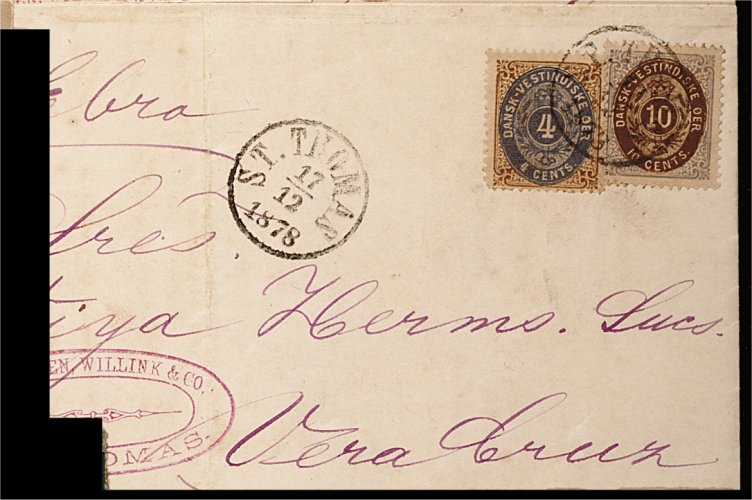 Ebro
ST. THOMAS
17
12
1878
DANSK-VESTINDISKE ØER
4
4 CENTS.
DANSK-VESTINDISKE ØER
10
10 CENTS.
Sres.
Hermo. Sucs.
EN, WILLINK & CO.
OMAS.
Vera Cruz